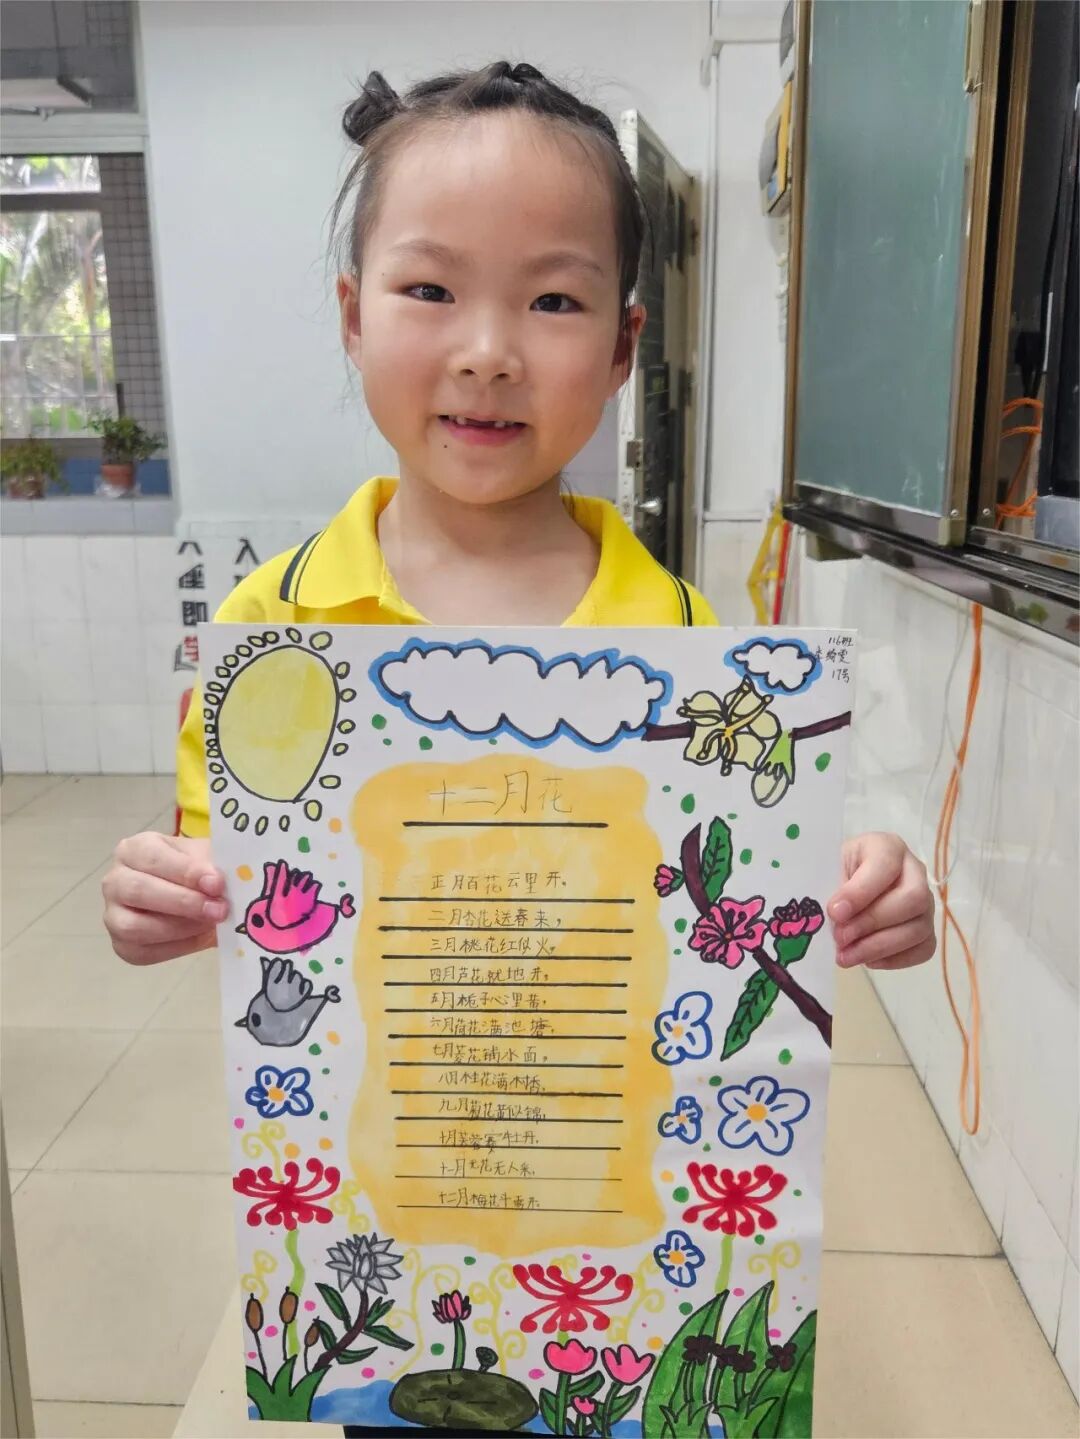 116班
李绮雯
17号
十二月花
正月百花云里开。
二月杏花送春来，
三月桃花红似火。
四月芦花就地开。
五月栀子心里黄，
六月荷花满池塘。
七月菱花铺水面，
八月桂花满树香。
九月菊花黄似锦，
十月芙蓉赛牡丹。
十一月无花无人采，
十二月梅花斗雪开。
入
座
即
学
入